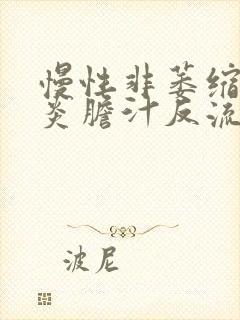 慢性非萎缩
炎膽汁反流
波尼